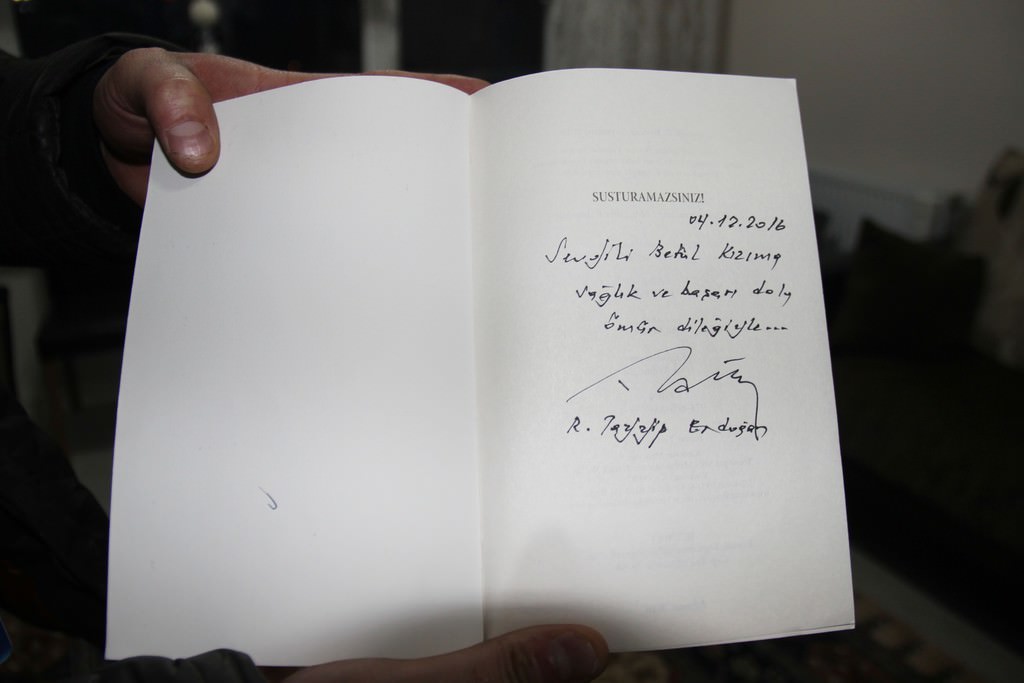 SUSTURAMAZSINIZ!
04.12.2016
Sevgili Betül Kızıma
sağlık ve başarı dolu
ömür dileğiyle...
R. Tayyip Erdoğan